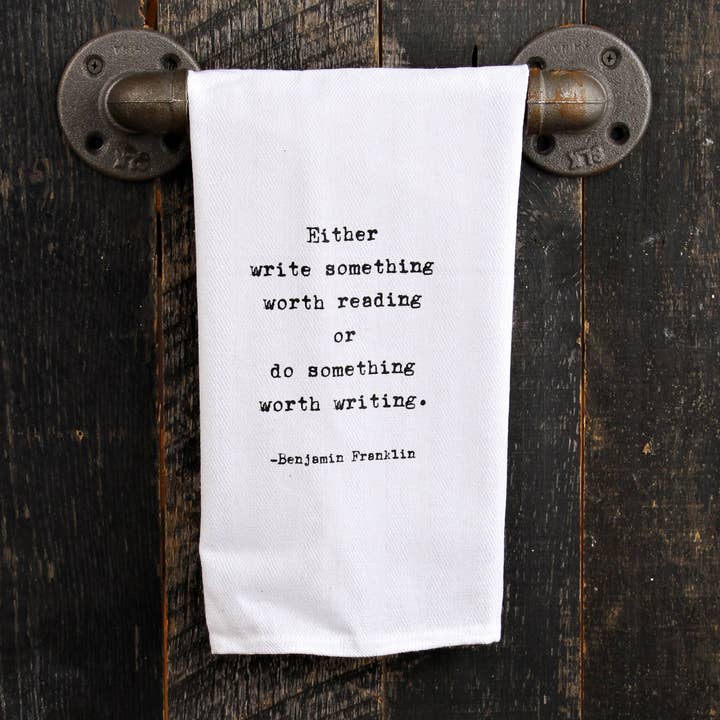 Either
write something
worth reading
or
do something
worth writing.
-Benjamin Franklin